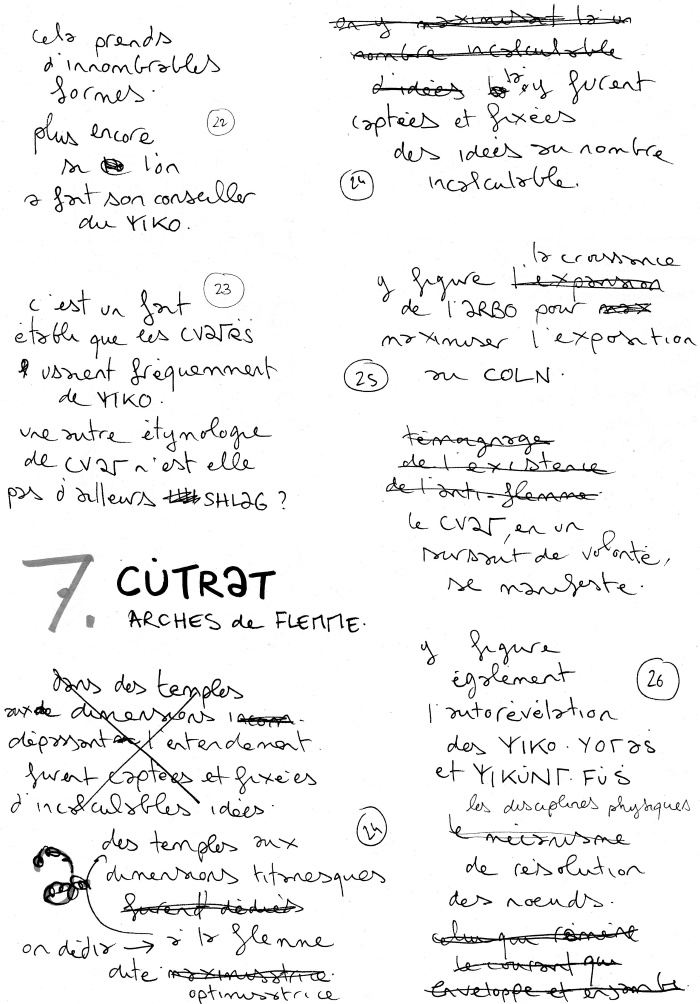 cela prends
d'innombrables
formes.
22
plus encore
si l'on
a fait son conseiller
du YIKO.
23
c'est un fait
établi que les CVaTës
usaient fréquemment
de YIKO.
une autre étymologie
de CVaT n'est elle
pas d'ailleurs SHLaG ?
7. CÜTRaT
ARCHES de FLEMME.
dans des temples
aux dimensions
dépassant l'entendement
furent captées et fixées
d'incalculables idées.
24
des temples aux
dimensions titanesques
furent dédiés
on dédia → à la flemme
dite maximisatrice
optimisatrice
en y maximisat là un
nombre incalculable
d'idées là, y furent
captées et fixées
des idées au nombre
24 incalculable.
la croissance
y figure l'expansion
de l'aRBO pour
maximiser l'exposition
25 au COLN.
témoignage
de l'existence
de l'anti-flemme
le CVaT, en un
sursaut de volonté,
se manifeste.
y figure
également
26
l'autorévélation
des YIKO.YOTaS
et YIKÜNT.FÜS
les disciplines physiques
le mécanisme
de résolution
des nœuds.
celui qui
le courant qui
enveloppe et ensemble